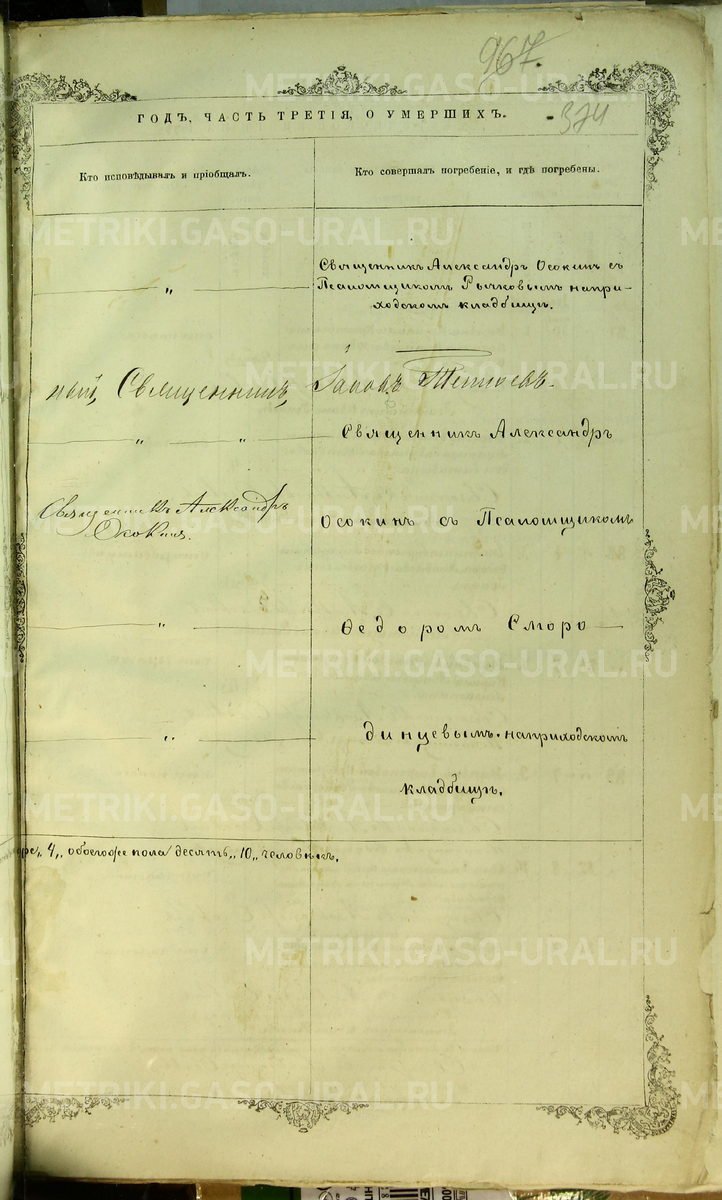 967.
374
ГОДЪ, ЧАСТЬ ТРЕТІЯ, О УМЕРШИХЪ.
Кто исповѣдывалъ и пріобщалъ.
Кто совершалъ погребеніе, и гдѣ погребены.
Священникъ Александръ Осокинъ съ
Псаломщикомъ Рычковымъ на при-
ходскомъ кладбищѣ.
Священникъ,
Священникъ Александръ
Священникъ Александръ
Осокинъ.
Осокинъ съ Псаломщикомъ
Ѳедоромъ Сморо-
динцевымъ на приходскомъ
кладбищѣ.
4, обоего же пола десять „10„ человѣкъ.
METRIKI.GASO-URAL.RU